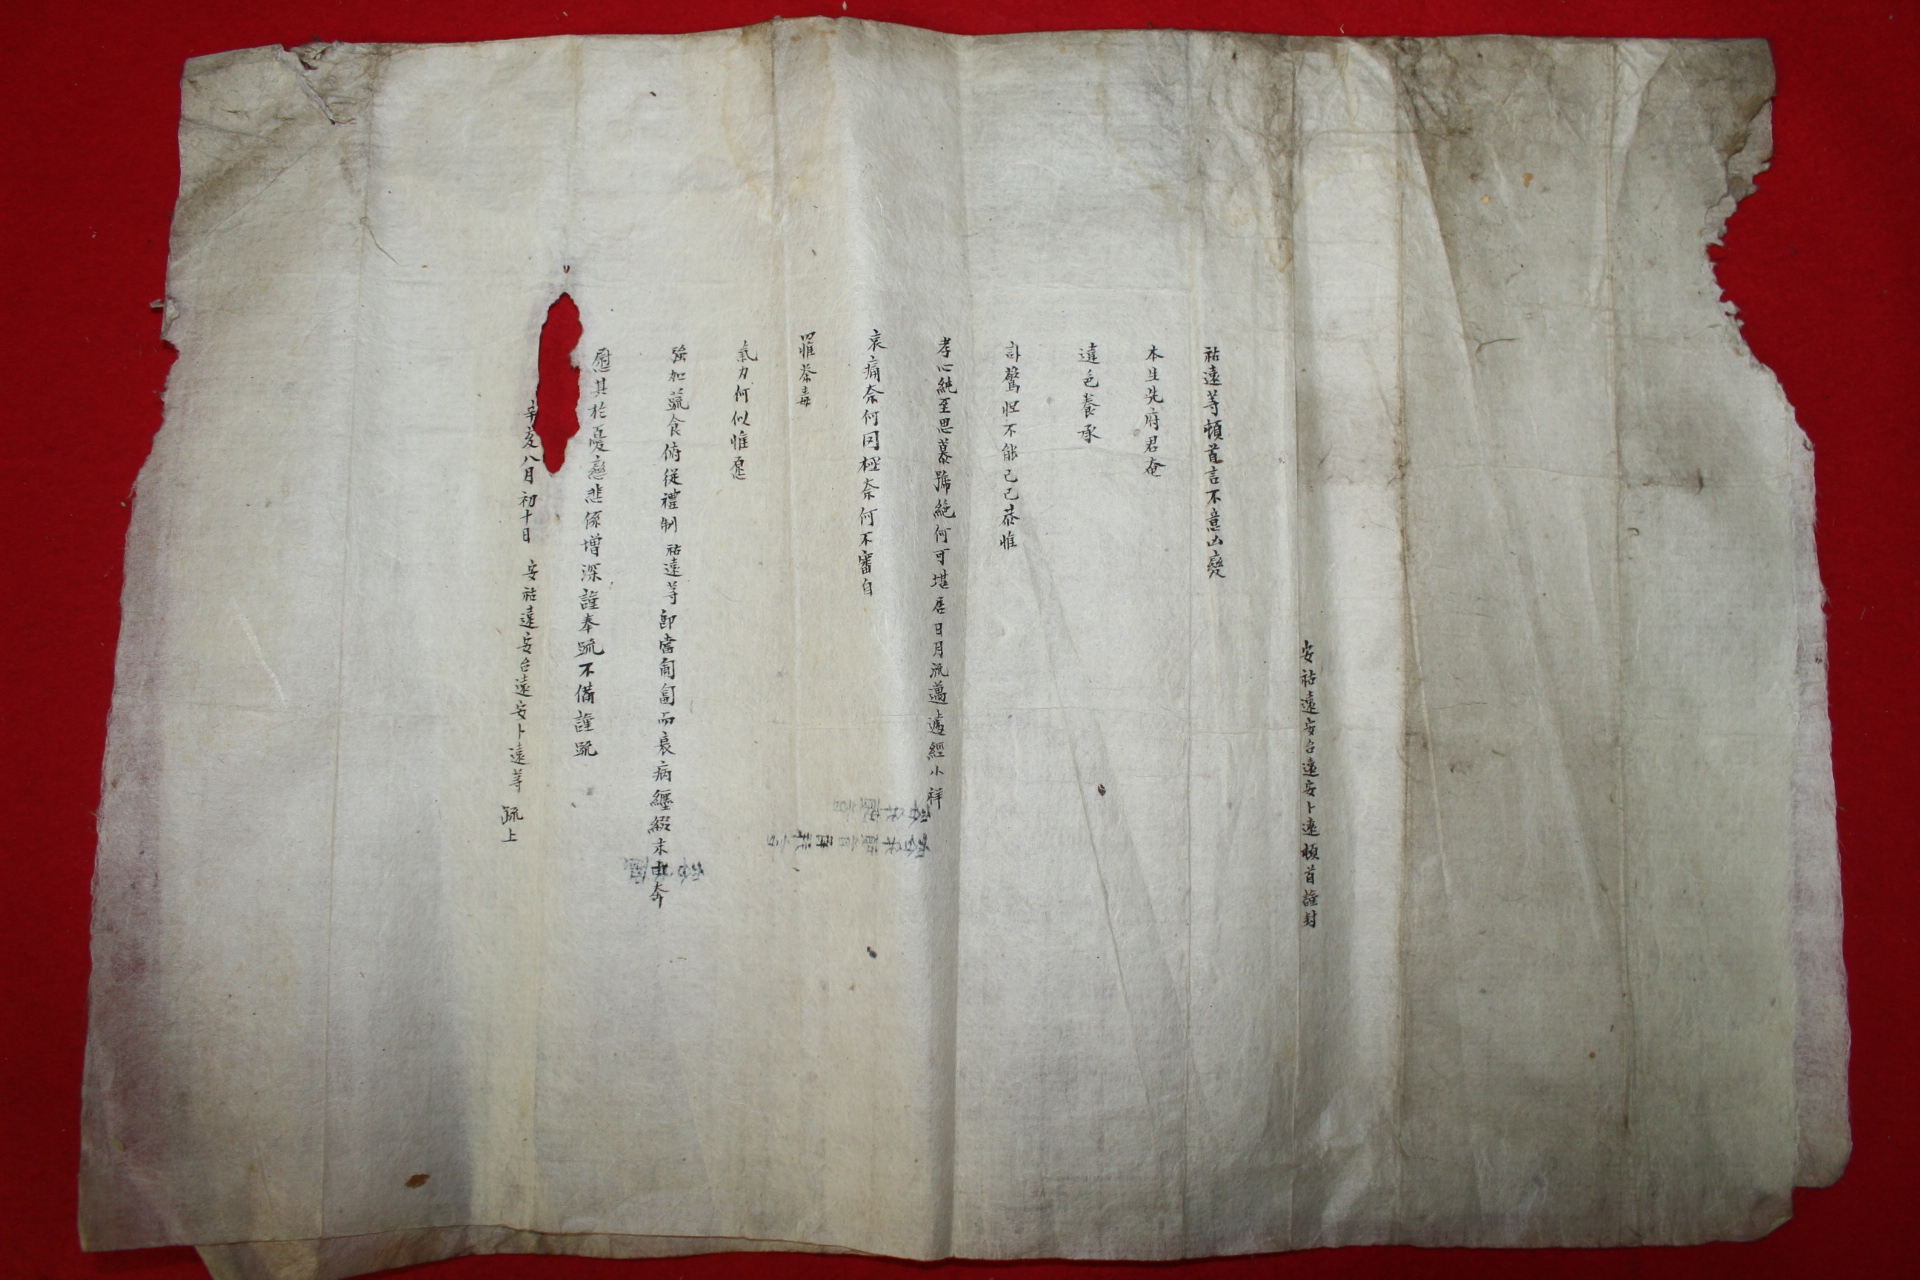 安祜遠安台遠安卜遠頓首謹封
祜遠等頓首言不意凶變
本生先府君奄
違色養承
訃驚怛不能已已恭惟
孝心純至思慕號絶何可堪居日月流邁遽經小祥
哀痛奈何罔極奈何不審自
罹荼毒
氣力何似惟冀
強加蔬食俯從禮制祜遠等即當匍匐而衰病纏綴末由奔
慰其於憂戀悲係增深謹奉疏不備謹疏
辛亥八月初十日 安祜遠安台遠安卜遠等 疏上